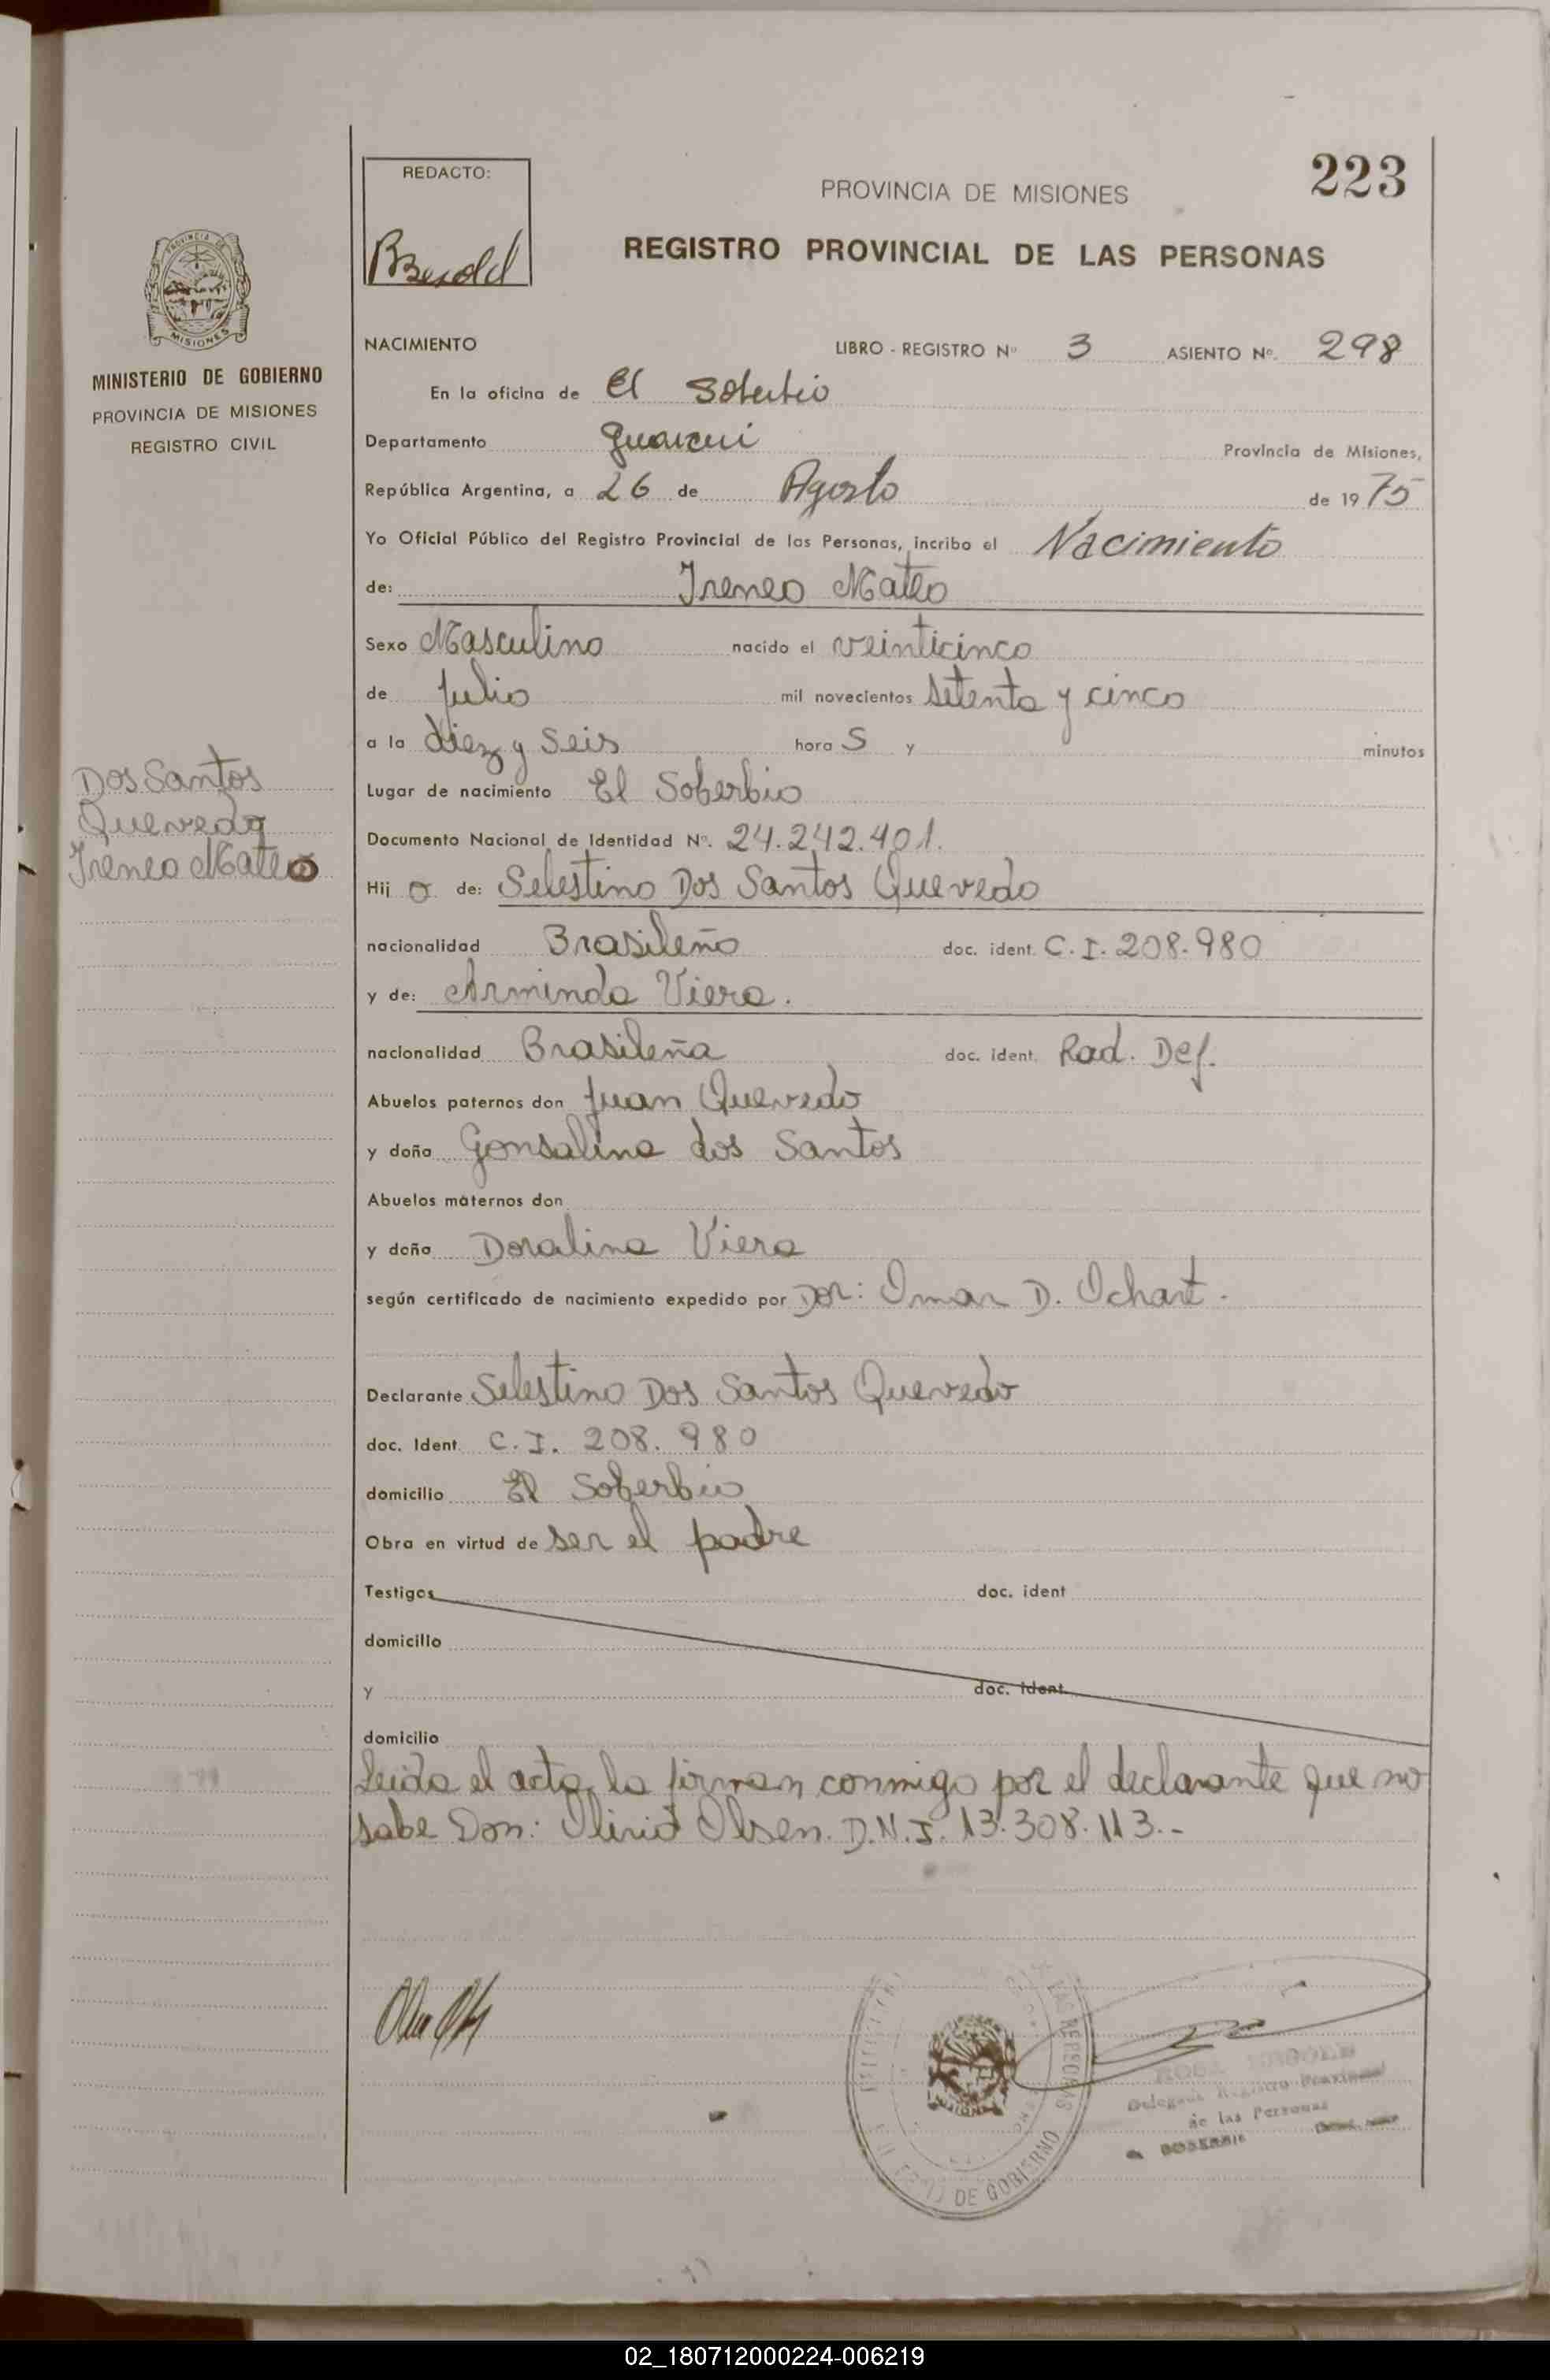 223
REDACTO:
PROVINCIA DE MISIONES
REGISTRO PROVINCIAL DE LAS PERSONAS
MISIONES
MINISTERIO DE GOBIERNO
PROVINCIA DE MISIONES
REGISTRO CIVIL
NACIMIENTO LIBRO - REGISTRO Nº 3 ASIENTO Nº. 298
En la oficina de El Soberbio
Departamento Guaraní Provincia de Misiones,
República Argentina, a 26 de Agosto de 1975
Yo Oficial Público del Registro Provincial de las Personas, incribo el Nacimiento
de: Ireneo Mateo
Sexo Masculino nacido el veinticinco
de Julio mil novecientos setenta y cinco
a la diez y seis hora S y minutos
Dos Santos
Quevedo
Ireneo Mateo
Lugar de nacimiento El Soberbio
Documento Nacional de Identidad Nº. 24.242.401.
Hij o de: Selestino Dos Santos Quevedo
nacionalidad Brasileño doc. ident. C.I. 208.980
y de: Arminda Viera.
nacionalidad Brasileña doc. ident. Rad. Def.
Abuelos paternos don Juan Quevedo
y doña Gonsalina dos Santos
Abuelos maternos don
y doña Doralina Viera
según certificado de nacimiento expedido por Dor: Omar D. Ochart.
Declarante Selestino Dos Santos Quevedo
doc. Ident. C.I. 208.980
domicilio El Soberbio
Obra en virtud de ser el padre
Testigos doc. ident
domicilio
y doc. ident.
domicilio
Leida el acta, la firman conmigo por el declarante que no
sabe Don: Olirio Olsen. D.N.I. 13.308.113.-
DE GOBIERNO
Delegada Registro Provincial
de las Personas
02_180712000224-006219